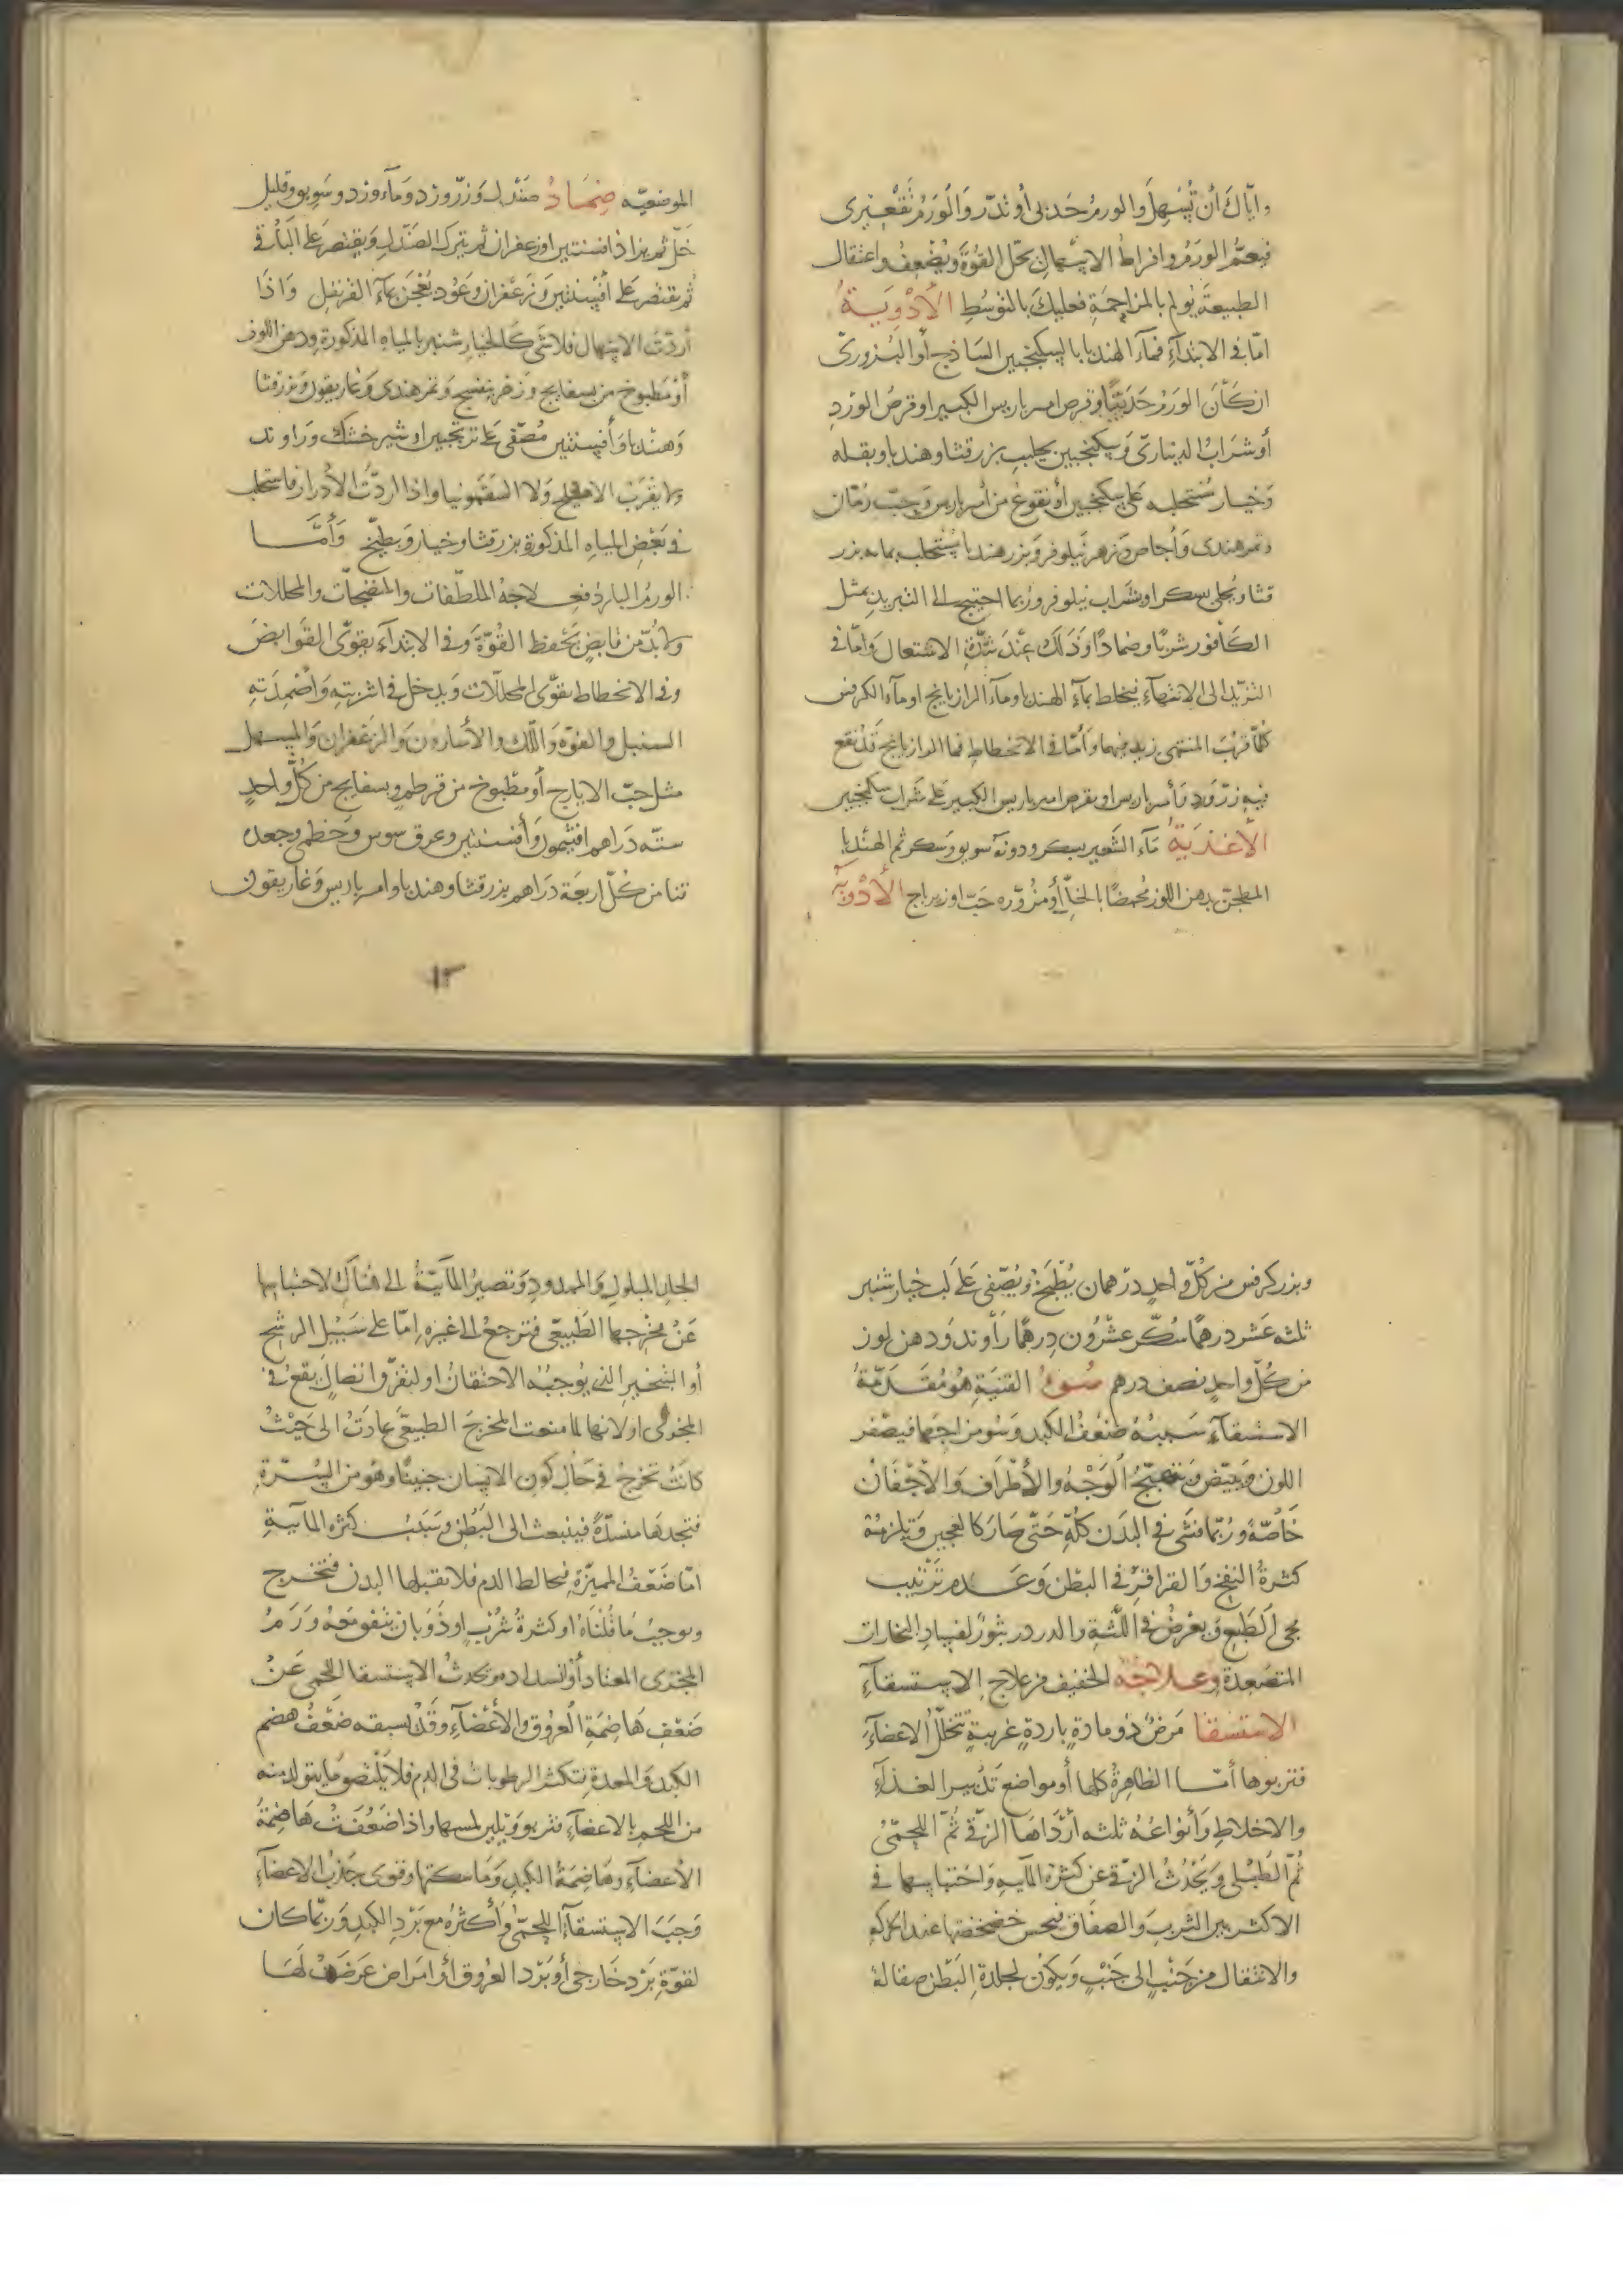 واياك أن تُسهل والورم حدبي أو تدر والورم تقعيري
فيعم الورم وافراط الاسهال يحل القوة ويضعف واعتقال
الطبيعة يولم بالمزاحمة فعليك بالتوسط الأدوية
امّا في الابتداء فماء الهندبا بالسكنجبين الساذج أو البزوري
ان كان الورم حدبيّا وقرص امير باريس الكبير او قرص الورد
أو شراب الديناري وسكنجبين بحليب بزر قثا وهندبا وبقله
وخيار مستحلبه على سكنجبين أو نقوع من أمير باريس وحبّ رمّان
وتمر هندي وأجاص وزهر نيلوفر وبزر هندبا يستحلب بمايه بزر
قثا ويحلى بسكر او بشراب نيلوفر وربما احتيج الى التبريد بمثل
الكافور شربًا وضمادًا وذلك عند شدّة الاشتعال وامّا في
التزيّد الى الانتهاء فيخلط بماء الهندبا وماء الرازيانج او ماء الكرفس
كلّما قرب المنتهى زيد فيهما وأمّا في الانحطاط فما الرازيانج قد نقع
فيه زرّ ورد وأمير باريس او بقرص امير باريس الكبير على شراب سكنجبين
الأغذية ماء الشعير بسكر ودونه سويق وسكر ثم الهندبا
المطجن بدهن اللوز محمضًا بالخلّ أو مزوّره حبّ او زيرباج الأدوية
الموضعيّه ضمادٌ صندل وزرّ ورد وماء ورد وسويق وقليل
خلّ ثم يزاد افسنتين او زعفران ثم يترك الصندل ويقتصر على الباقي
ثم يقتصر على أفسنتين وزعفران وعود يعجن بماء القرنفل واذا
أردت الاسهال فلا شي كالخيار شنبر بالمياه المذكورة ودهن اللوز
أو مطبوخ من بسفايج وزهر بنفسج وتمر هندي وغاريقون وبزر قثا
وهندبا وأفسنتين مصفّى على ترنجبين او شير خشك وراوند
ولا يقرب الاهليلج ولا السقمونيا واذا اردت الأدرار فاستحلب
في بعض المياه المذكورة بزر قثا وخيار وبطيخ وأمّا
الورم البارد فعلاجه الملطّفات والمنضجات والمحللات
ولا بدّ من قابض يحفظ القوّة وفي الابتداء يقوّى القوابض
وفي الانحطاط يقوّى المحلّلات ويدخل في اشربته وأضمدته
السنبل والفوّه واللّك والأسارون والزعفران والمسهل
مثل حبّ الايارج أو مطبوخ من قرطم وبسفايج من كلّ واحد
ستّه دراهم افتيمون وأفسنتين وعرق سوس وخطمي وجعده
تنا من كلّ اربعة دراهم بزر قثا وهندبا وامير باريس وغاريقون
١٣
وبزر كرفس من كلّ واحد درهمان يُطبخ ويُصفى على لب خيار شنبر
ثلثه عشر درهمًا سكّر عشرون درهمًا راوند ودهن لوز
من كلّ واحد نصف درهم سوء القنية هو مقدّمة
الاستسقاء سببه ضعف الكبد وسو مزاجها فيصفر
اللون ويبيّض ويتهبّج الوجه والأطراف والأجفان
خاصّة وربّما فشى في البدن كلّه حتى صار كالعجين ويلزمه
كثرة النفخ والقراقر في البطن وعدم ترتيب
مجى الطبيع ويعرض في اللثة والدردر بثور لفساد البخارات
المتصعدة وعلاجه الخفيف من علاج الاستسقاء
الاستسقا مرض ذو مادة باردة غريبة تتخلّل الاعضاء
فتربو ها أمّا الظاهرة كلها أو مواضع تدبير الغذاء
والاخلاط وأنواعه ثلثه أرداها الزقي ثمّ اللحمّى
ثمّ الطبلى ويحدث الزقى عن كثرة المائية واحتباسها في
الاكثر بين الثرب والصفاق فيحس خضخضتها عند الحركه
والانتقال من جنب الى جنب ويكون لجلدة البطن صقالة
الجلد المبلول والممدود وتصير المآئيّة الى هناك لاحتباسها
عن مخرجها الطبيعي فترجع الى غيره امّا على سبيل الرشح
أو التبخير الذي يوجبه الاحتقان او لتفرّق اتصال يقع في
المجرى او لانها لما منعت المخرج الطبيعي عادت الى حيث
كانت تخرج في حال كون الانسان جنينًا وهو من السّرة
فتجدها منسدّة فينبعث الى البطن وسبب كثره المآئية
امّا ضعف المميزة فيخالط الدم فلا تقبلها البدن فتخرج
ويوجب ما قلناه او كثرة شرب او ذوبان يتفق معه ورم
المجرى المعتاد أو انسداده ويحدث الاستسقا اللحمى عن
ضعف هاضمة العروق والأعضاء وقد يسبقه ضعف هضم
الكبد والمعدة فتكثر الرطوبات في الدم فلا يلتصق ما يتولد منه
من اللحم بالاعضاء فتربو ويلين لمسها واذا ضعفت هاضمة
الأعضاء وهاضمة الكبد وماسكتها وقوى جذب الاعضاء
وجب الاستسقاء اللحمّى وأكثره مع برد الكبد وربّما كان
لقوّة برد خارجى أو برد العروق أو امراض عرضت لها